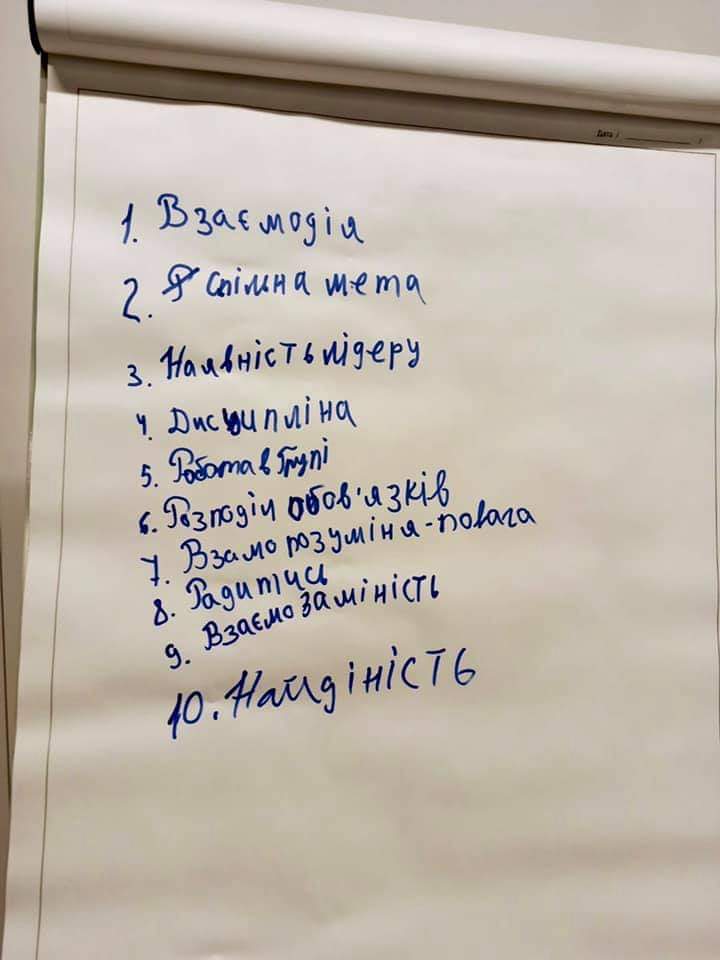 Дата /
1. Взаємодія
2. спільна мета
3. Наявність лідеру
4. Дисципліна
5. Робота в групі
6. Розподіл обов'язків
7. Взамо розуміня - повага
8. Радитись
9. Взаємо замінність
10. Найдіність